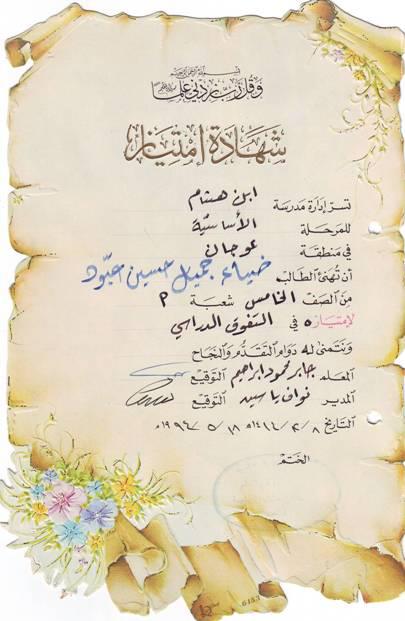 بسم الله الرحمن الرحيم
وقل رب زدني علما
شهادة إمتياز
تسر إدارة مدرسة ابن هشام
للمرحلة الأساسية
في منطقة عوجان
أن تهنئ الطالب ضياء جميل حسين عبود
من الصف الخامس شعبة م
لإمتيازه في التفوق الدراسي
ونتمنى له دوام التقدم والنجاح
المعلم جابر محمود ابراهيم التوقيع
المدير نواف ياسين التوقيع
التاريخ ٨ / ٢ / ١٤١٤هـ ١٨ / ٥ / ١٩٩٤م
الختم
6153